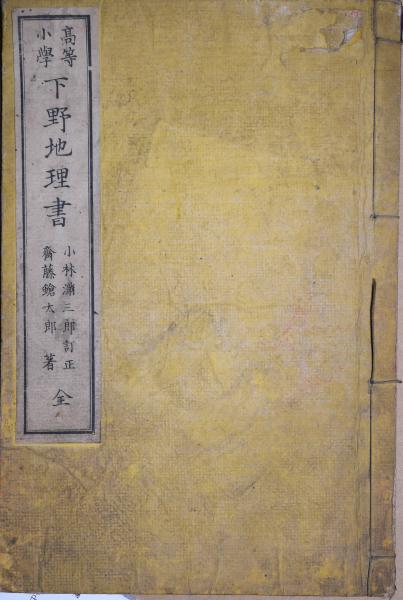 高等
小學
下野地理書
小林彌三郎訂正
齋藤鎗太郎 著
全